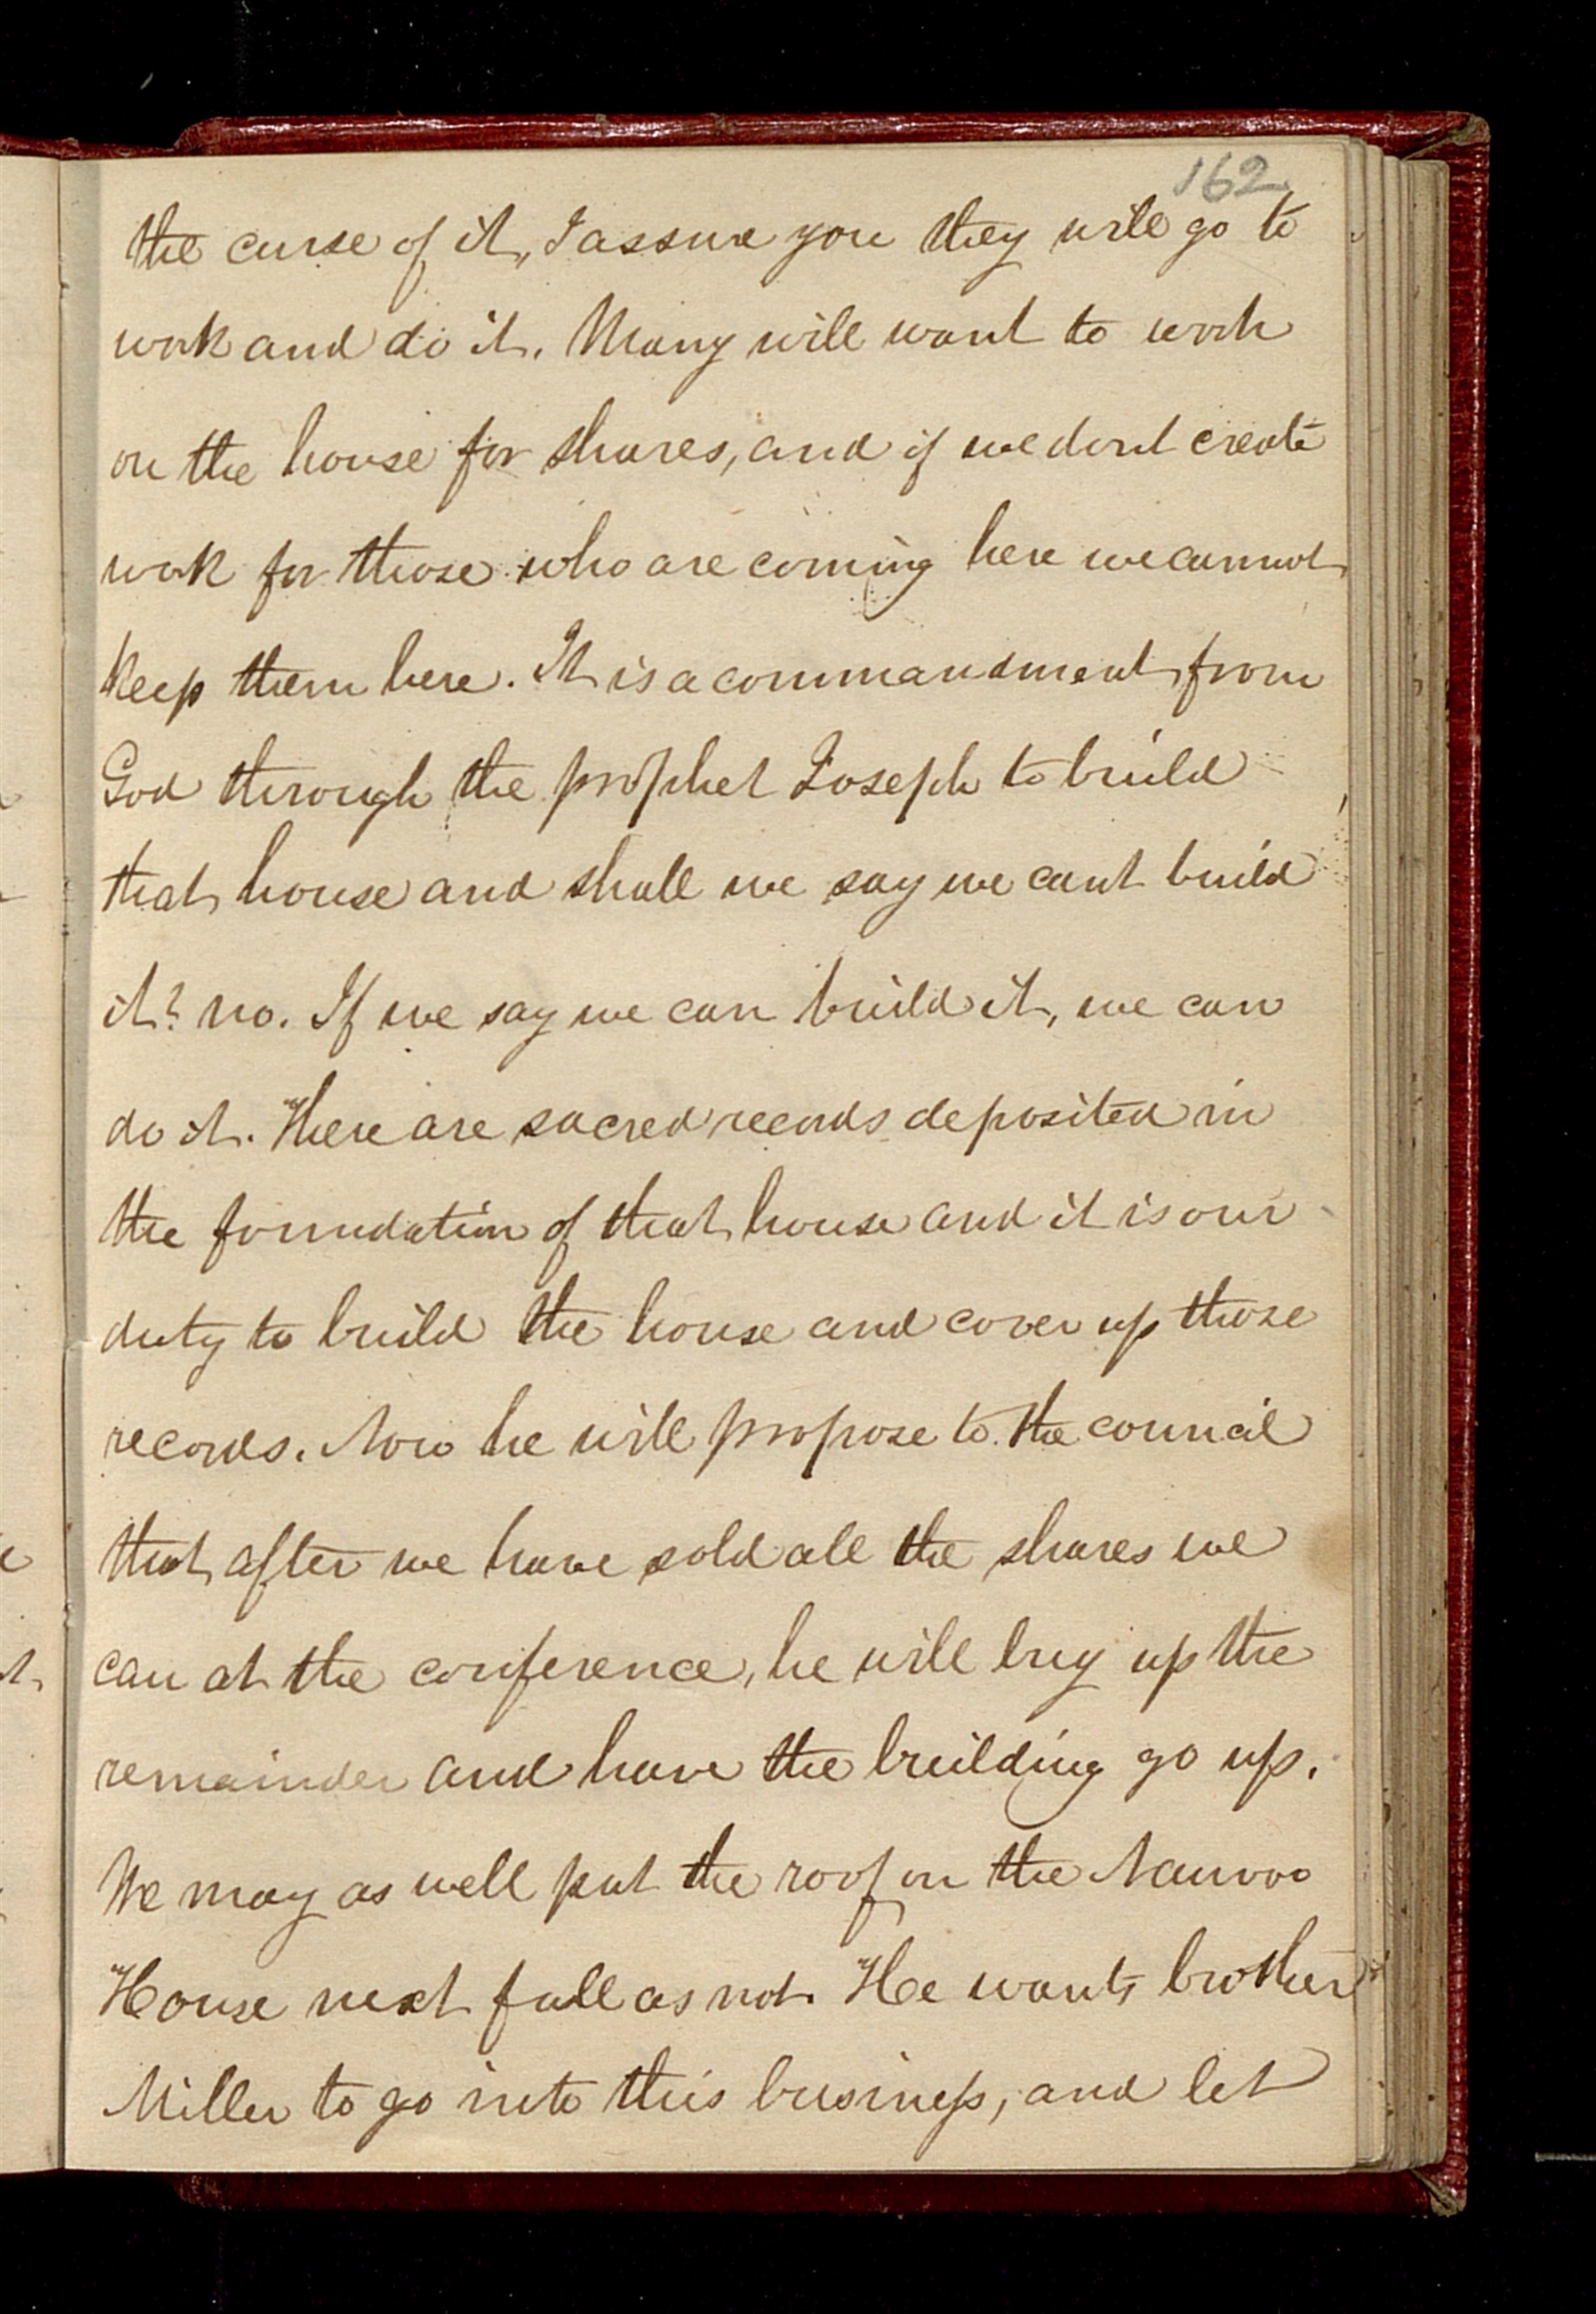 162
the curse of it, I assure you they will go to
work and do it. Many will want to work
on the house for shares, and if we dont create
work for those who are coming here we cannot
keep them here. It is a commandment from
God through the prophet Joseph to build
that house and shall we say we cant build
it? no. If we say we can build it, we can
do it. There are sacred records deposited in
the foundation of that house and it is our
duty to build the house and cover up those
records. Now he will propose to the council
that after we have sold all the shares we
can at the conference, he will buy up the
remainder and have the building go up.
We may as well put the roof on the Nauvoo
House next fall as not. He wants brother
Miller to go into this business, and let